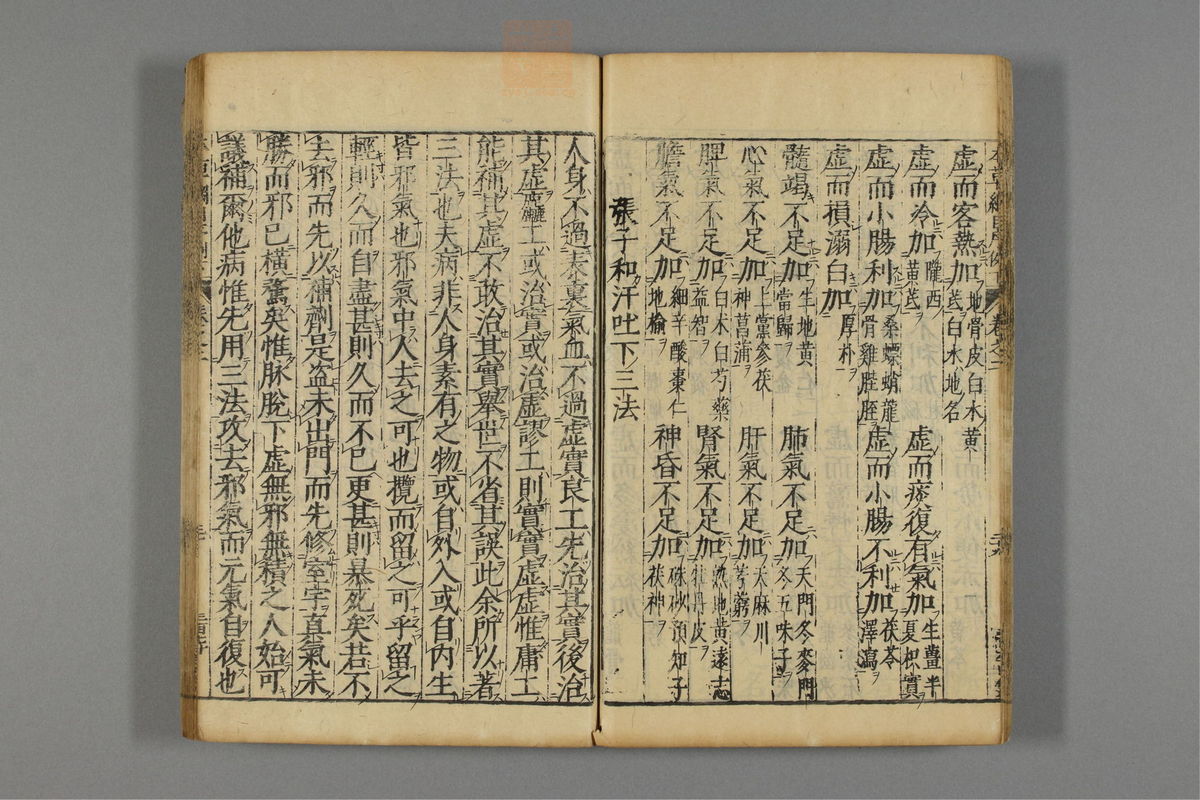 虛而客熱加地骨皮白水黃芪白水地名
虛而冷加隴西黃芪 虛而痰復有氣加生薑半夏枳實
虛而小腸利加桑螵蛸龍骨雞膍胵 虛而小腸不利加茯苓澤瀉
虛而損溺白加厚朴
髓竭不足加生地黃當歸 肺氣不足加天門冬麥門冬五味子
心氣不足加上黨參茯神菖蒲 肝氣不足加天麻川芎藭
脾氣不足加白朮白芍藥益智 腎氣不足加熟地黃遠志牡丹皮
膽氣不足加細辛酸棗仁地榆 神昏不足加硃砂預知子茯神
張子和汗吐下三法
人身不過表裏氣血不過虛實良工先治其實後治
其虛麤工或治實或治虛謬工則實實虛虛惟庸工
能補其虛不敢治其實舉世不省其誤此余所以著
三法也夫病非人身素有之物或自外入或自內生
皆邪氣也邪氣中人去之可也攬而留之可乎留之
輕則久而自盡甚則久而不已更甚則暴死矣若不
去邪而先以補劑是盜未出門而先修室宇真氣未
勝而邪已橫騖矣惟脉脫下虛無邪無積之人始可
議補爾他病惟先用三法攻去邪氣而元氣自復也